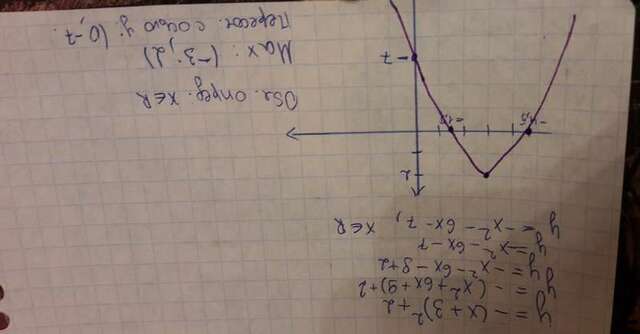 y = - (x + 3)² + 2
y = - (x² + 6x + 9) + 2
y = - x² - 6x - 9 + 2
y = -x² - 6x - 7
y = -x² - 6x - 7, x∈R
2
-4,5
-1,5
-7
Обл. опред. x∈R
Max: (-3; 2)
Перес. с осью y: (0, -7